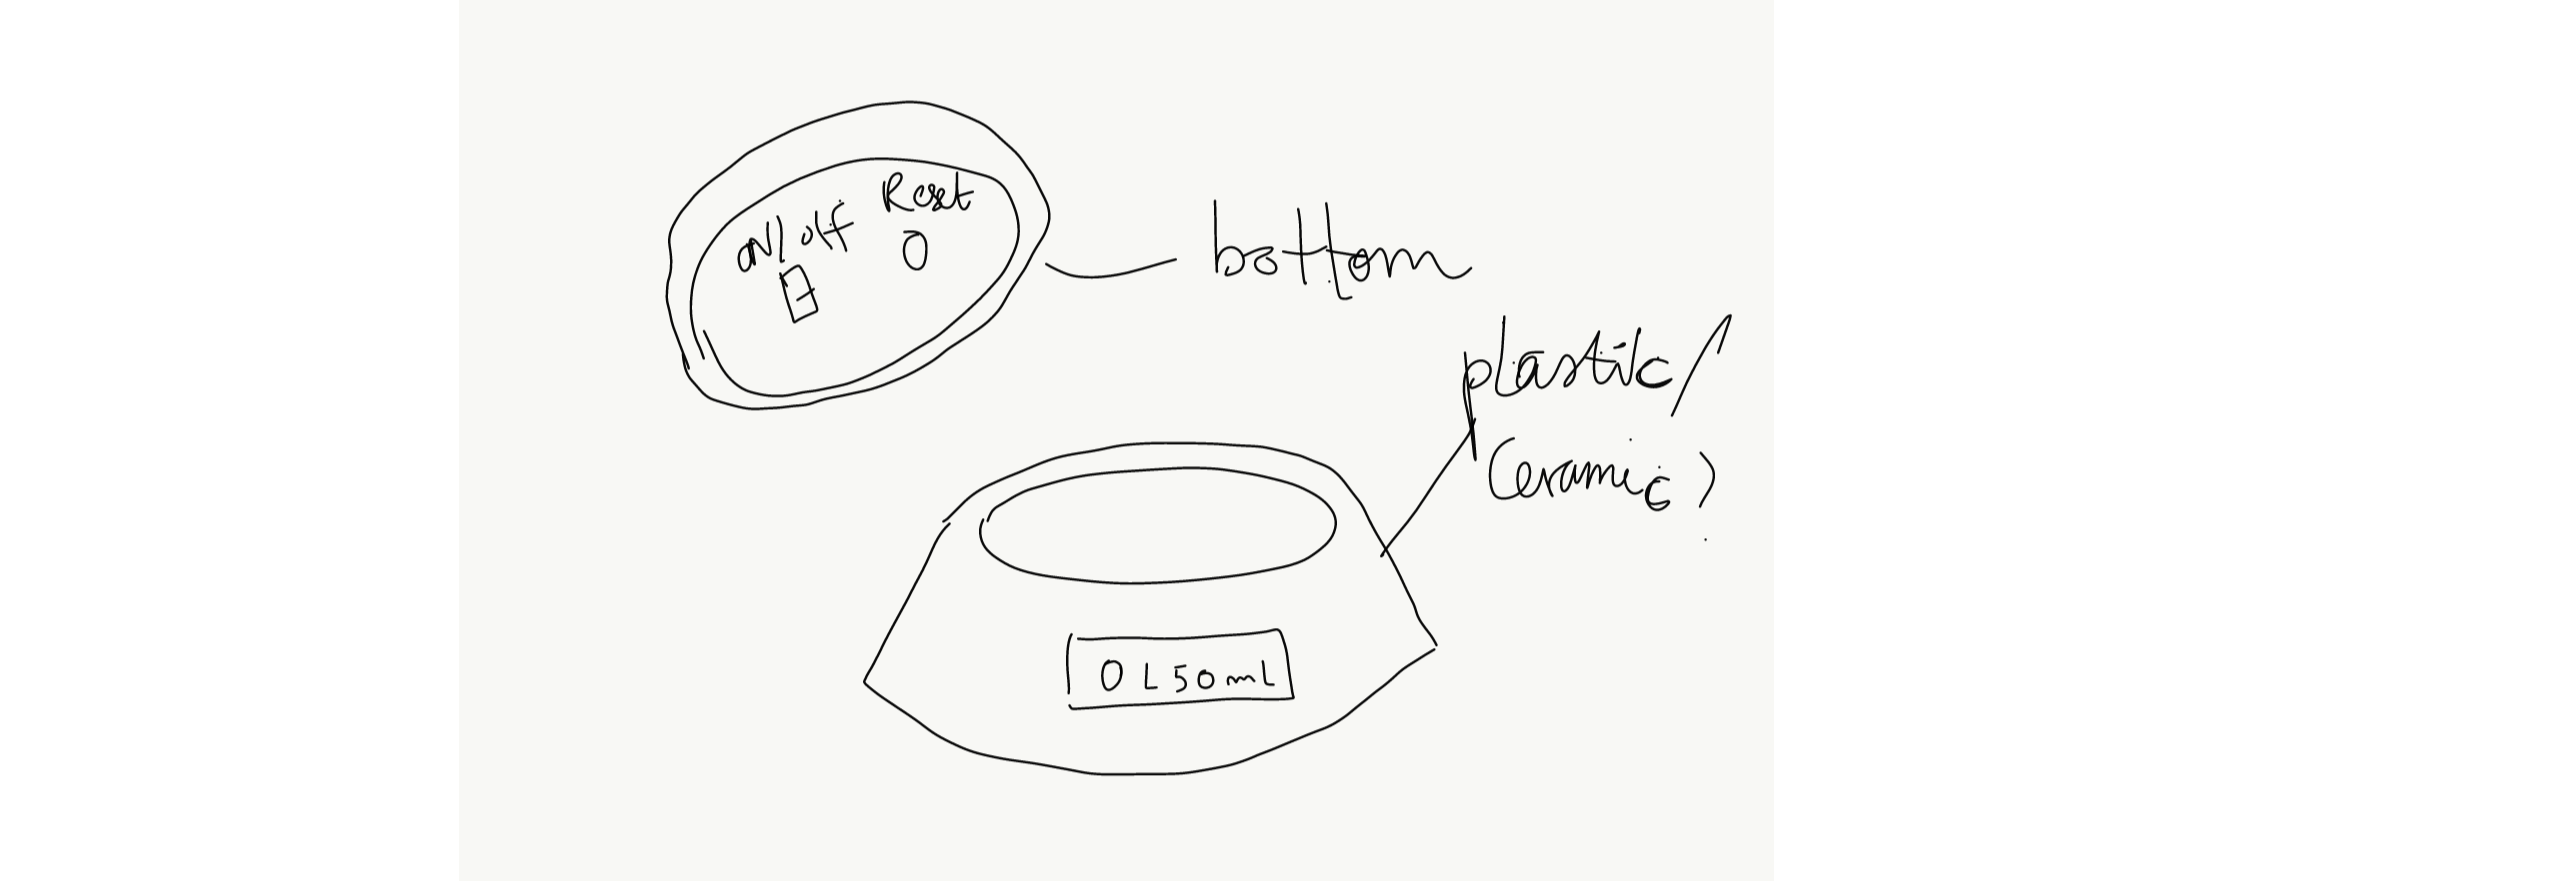 ON/off
Reset
bottom
plastic/
Ceramic?
0 L 50 mL